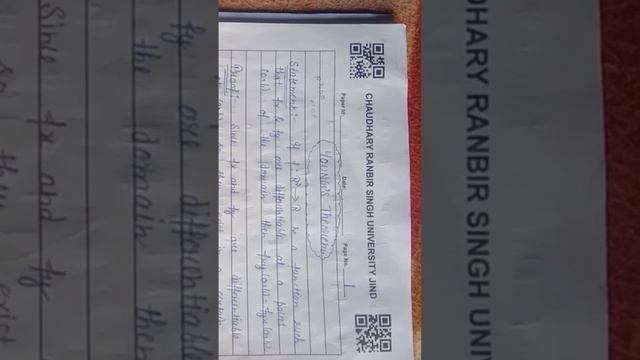 CHAUDHARY RANBIR SINGH UNIVERSITY JIND
Paper Id: Date: Page No. 1
YOUNG'S THEOREM
Statement:- If f: R² → R be a function such
that fx & fy are differentiable at a point
(a,b) of the domain then fxy(a,b) = fyx(a,b)
Proof:- Since fx and fy are differentiable
DHARY RANBIR SINGH UNI
fy are differentiable
the domain then
Since fx and fy
exist